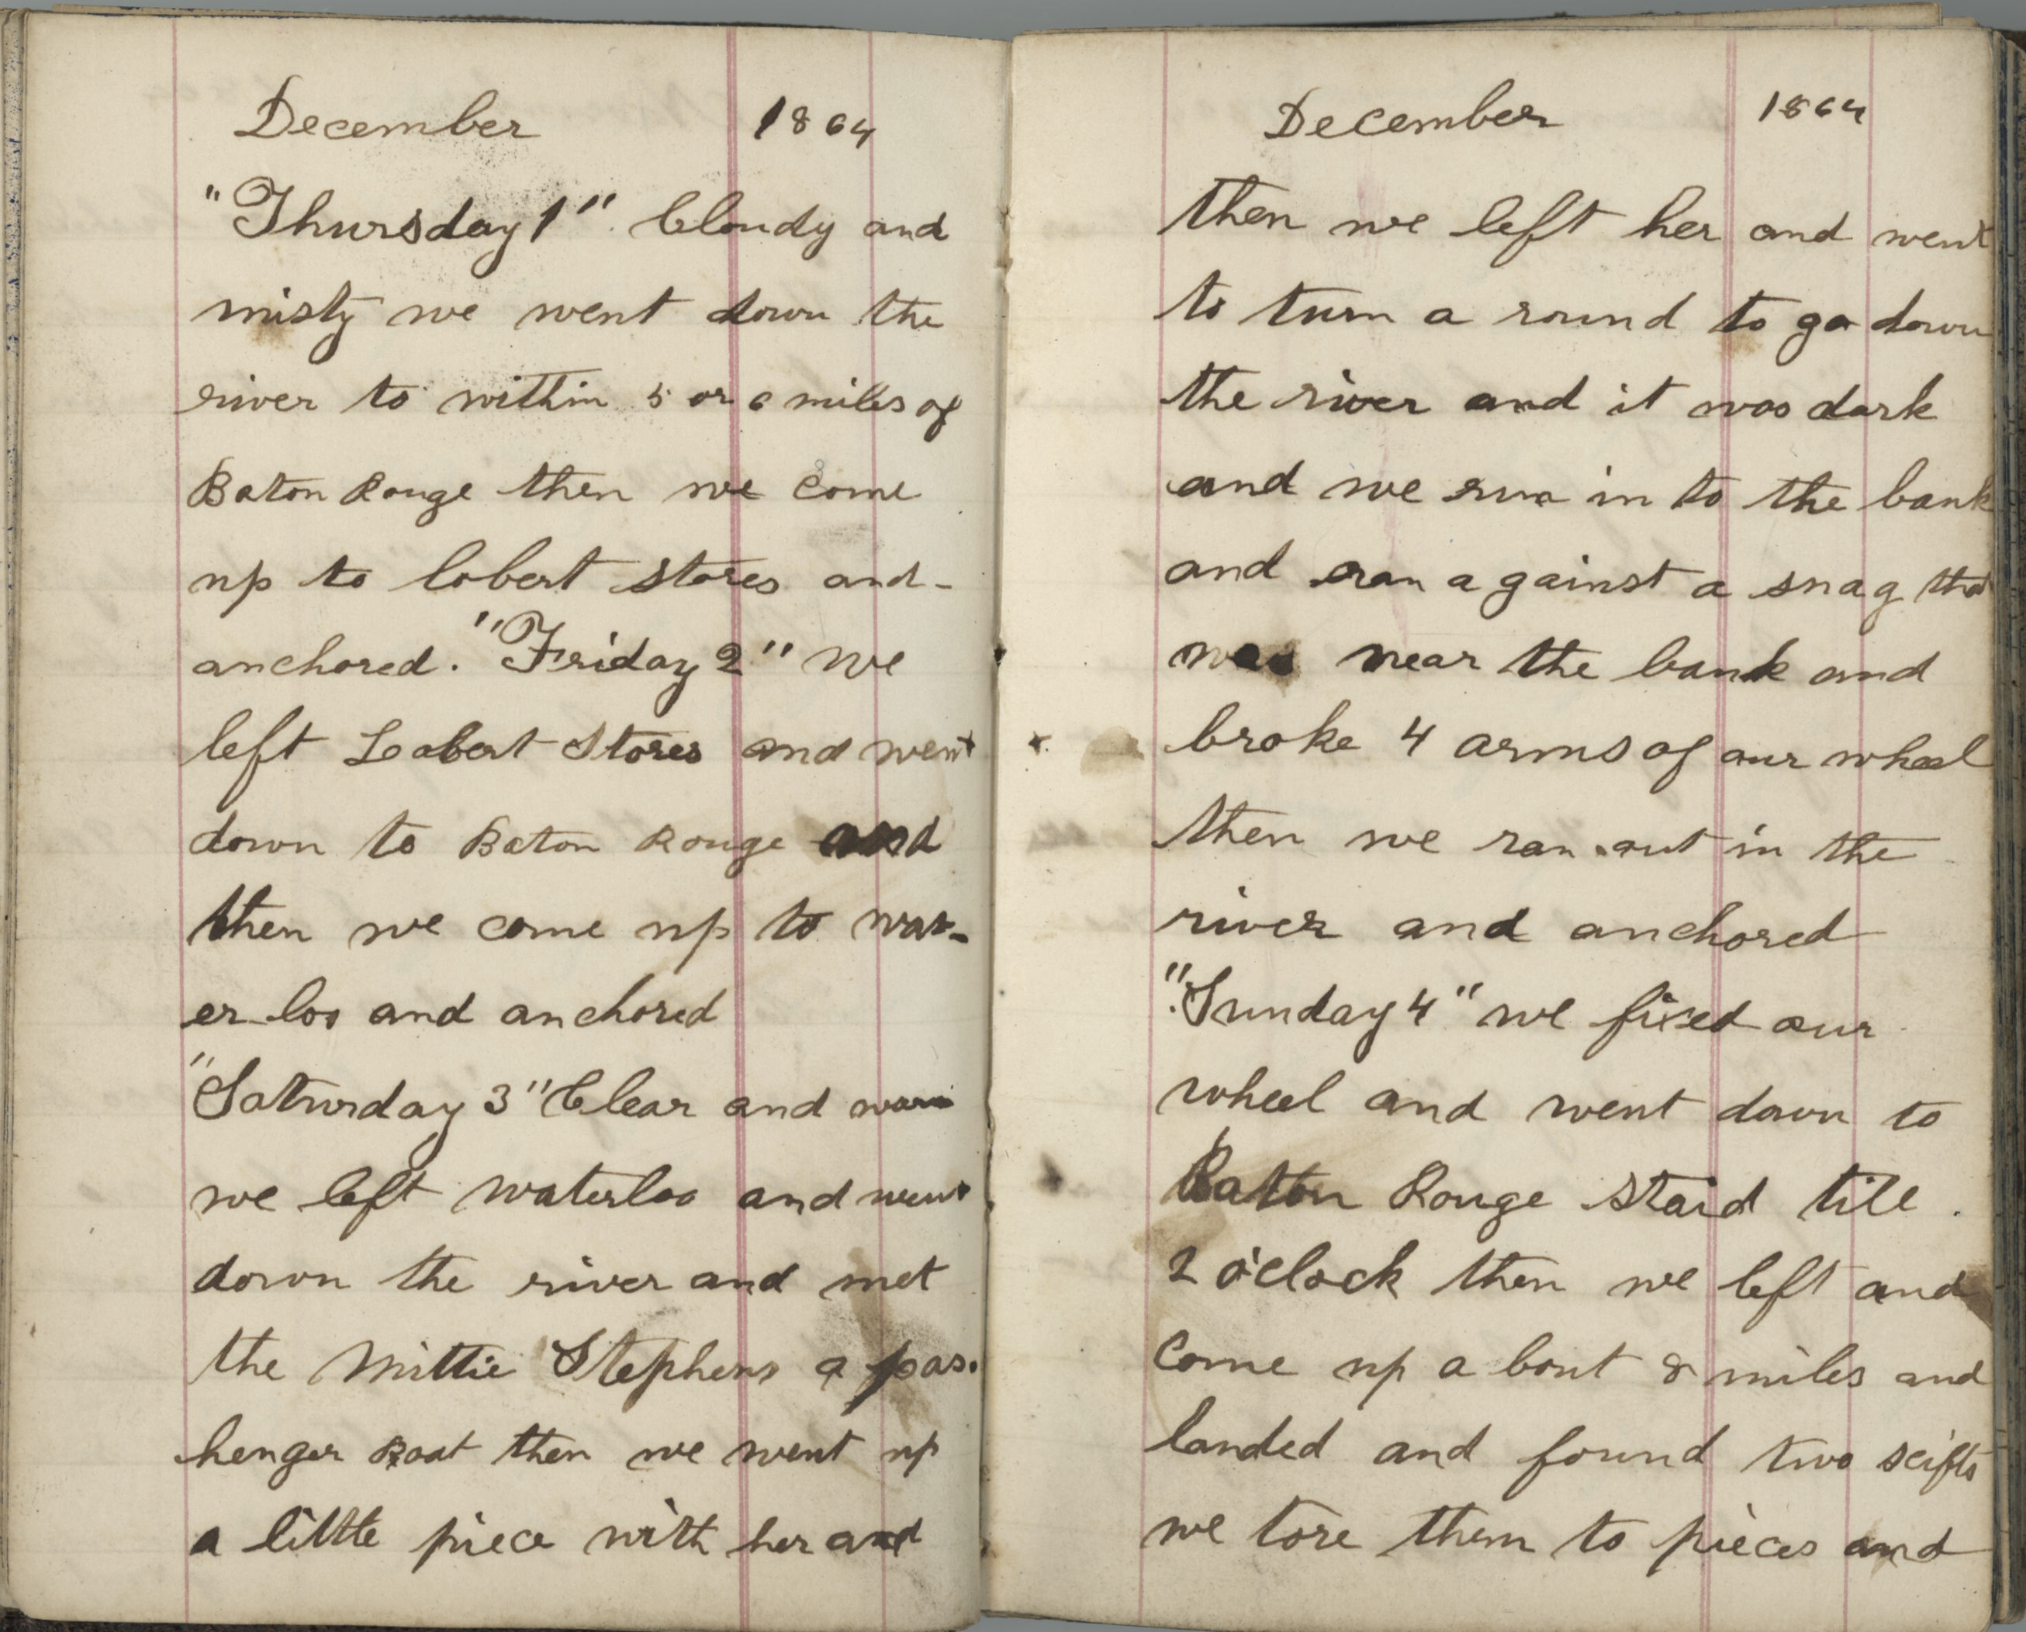 December 1864
"Thursday 1" Cloudy and
misty we went down the
river to within 5 or 6 miles of
Baton Rouge then we come
up to lobert stores and-
anchored. "Friday 2" we
left Lobert Stores and went
down to Baton Rouge and
then we come up to wat-
er loo and anchored
"Saturday 3" Clear and warm
we left waterloo and went
down the river and met
the Mittie Stephens a pas.
henger Boat then we went up
a little piece with her and
December 1864
then we left her and went
to turn a round to go down
the river and it was dark
and we run in to the bank
and ran a gainst a snag that
was near the bank and
broke 4 arms of our wheel
then we ran out in the
river and anchored
"Sunday 4" we fixed our
wheel and went down to
Baton Rouge staid till
2 o'clock then we left and
Come up a bout 8 miles and
landed and found two scifts
we tore them to pieces and